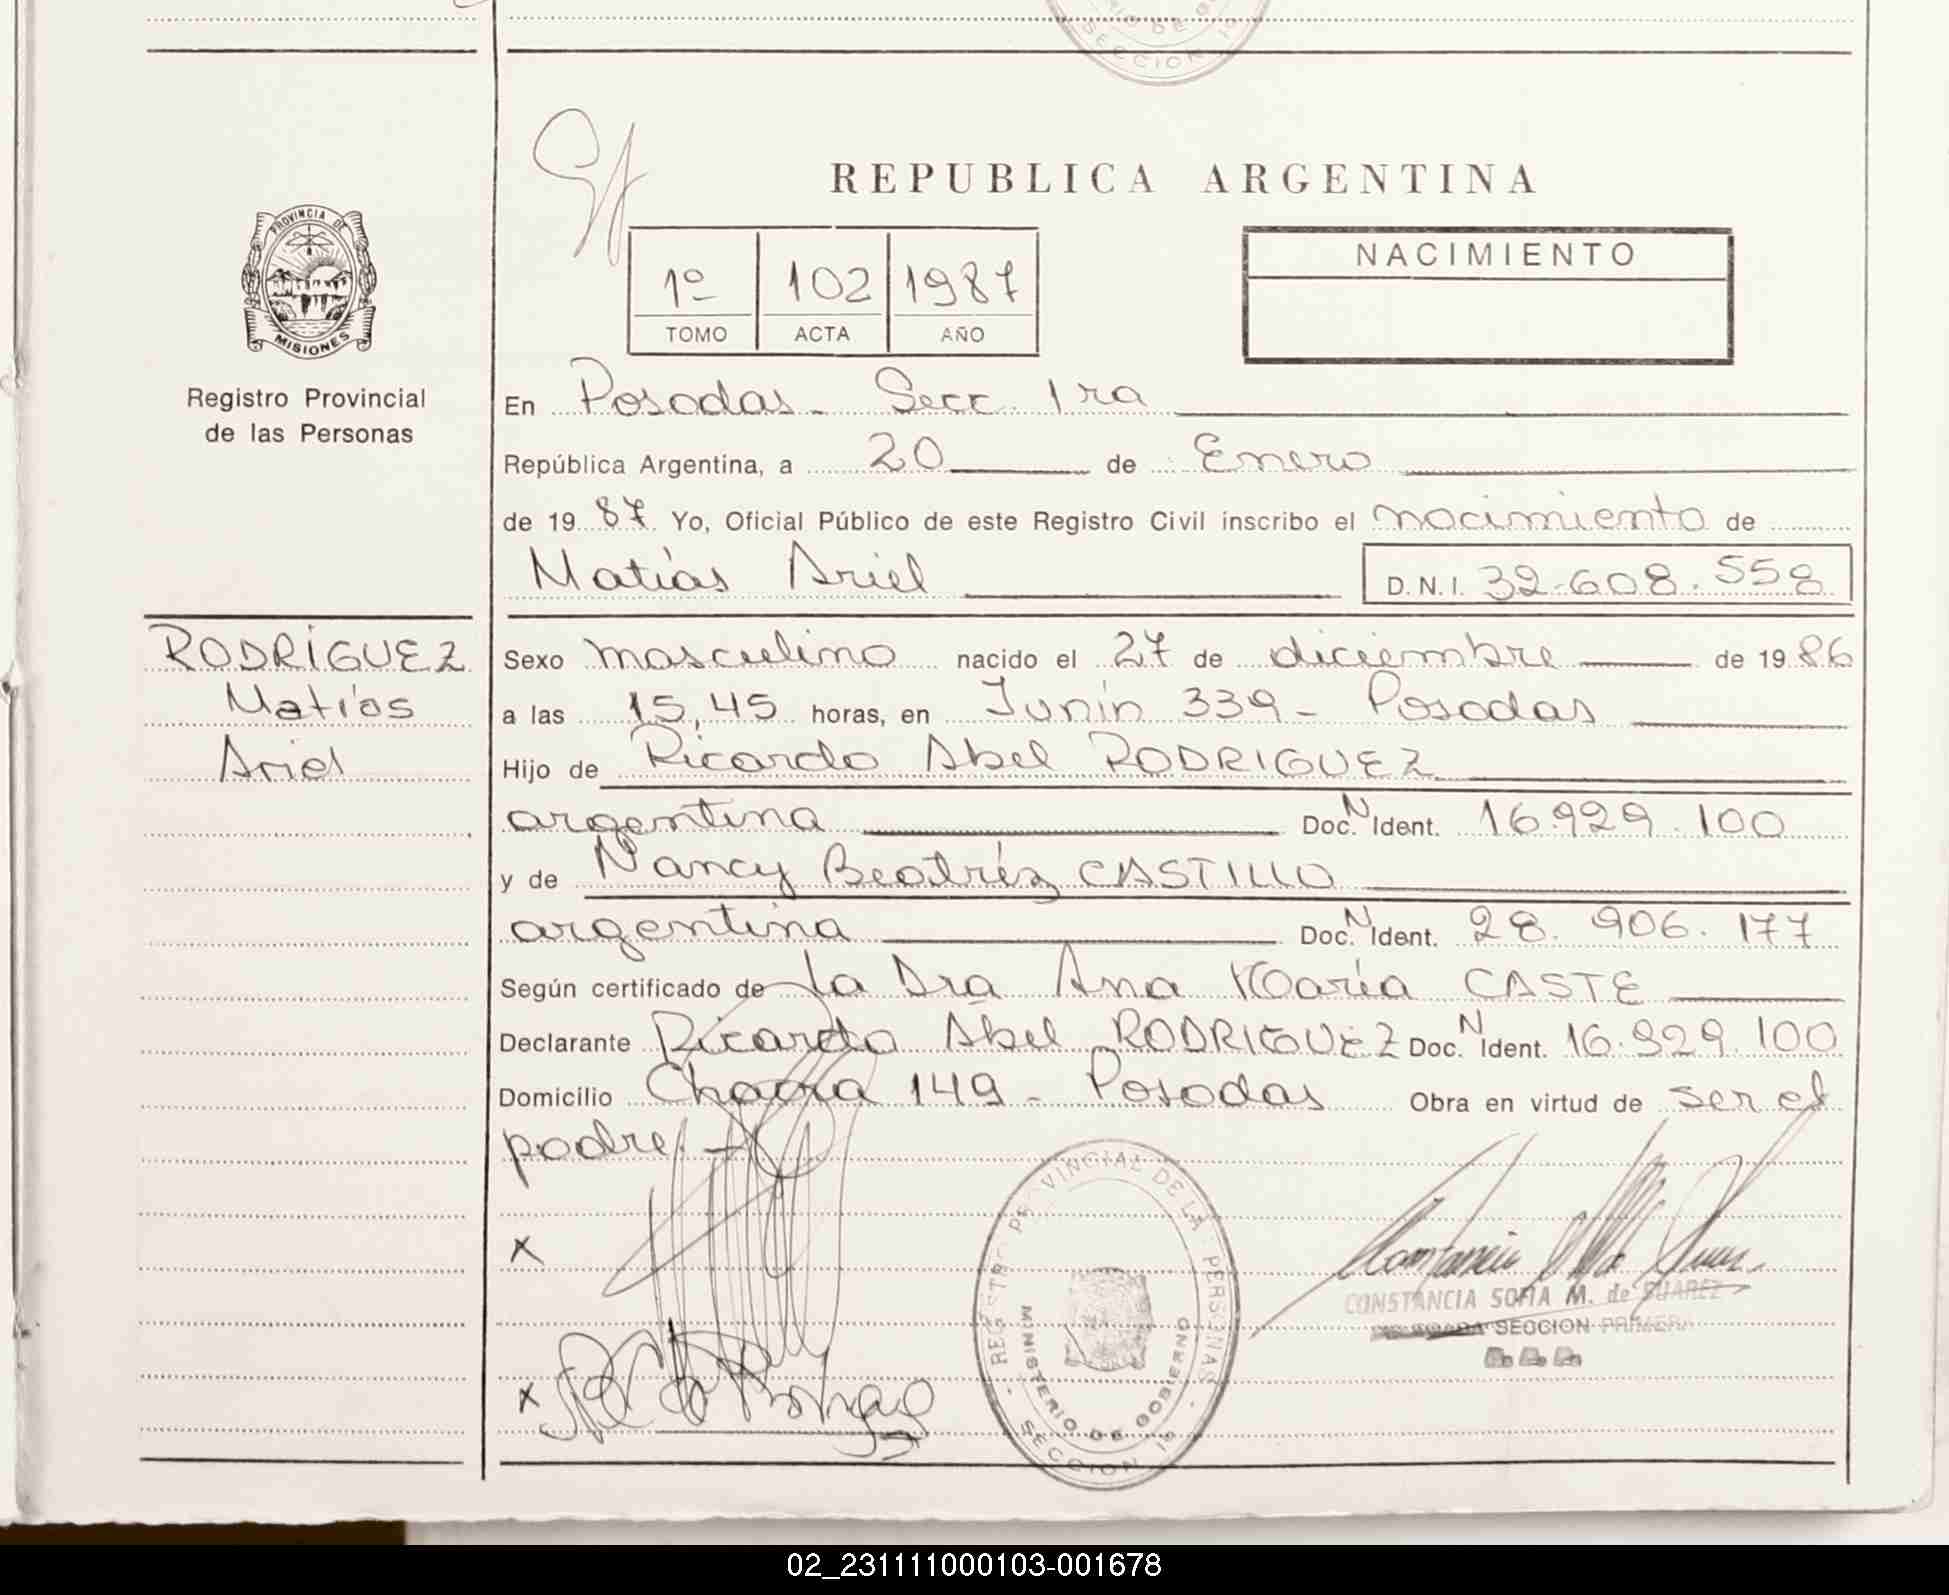 REPUBLICA ARGENTINA
PROVINCIA DE
MISIONES
Registro Provincial
de las Personas
1º 102 1987
TOMO ACTA AÑO
NACIMIENTO
En Posadas - Secc. 1ra
República Argentina, a 20 de Enero
de 1987. Yo, Oficial Público de este Registro Civil inscribo el nacimiento de
Matías Ariel D.N.I. 32.608.558
RODRÍGUEZ
Matías
Ariel
Sexo masculino nacido el 27 de diciembre de 1986
a las 15,45 horas, en Junín 339 - Posadas
Hijo de Ricardo Abel RODRIGUEZ
argentina Doc. N Ident. 16.929.100
y de Nancy Beatríz CASTILLO
argentina Doc. N Ident. 28.906.177
Según certificado de la Dra Ana María CASTE
Declarante Ricardo Abel RODRIGUEZ Doc. N Ident. 16.929.100
Domicilio Chacra 149 - Posadas Obra en virtud de ser el
padre. -
x
x
REGISTRO PROVINCIAL DE LA PERSONAS
MINISTERIO DE GOBIERNO
SECCION 1º
CONSTANCIA SOFIA M. de SUAREZ
SECCION PRIMERA
02_231111000103-001678